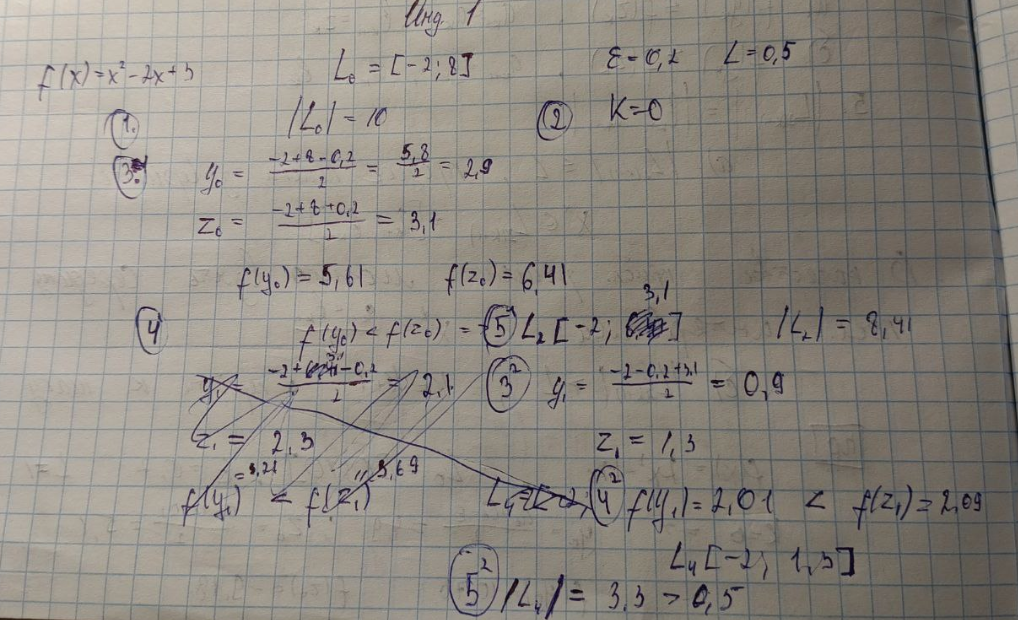 Инд 1
f(x)=x²-2x+3 L₀ = [-2; 8] ε=0,2 L=0,5
1. |L₀| = 10 2 K=0
3. y₀ = (-2+8-0,2)/2 = 5,8/2 = 2,9
z₀ = (-2+8+0,2)/2 = 3,1
f(y₀) = 5,61 f(z₀) = 6,41
4 f(y₀) < f(z₀) = 5 L₂ [-2; 3,1] |L₂| = 8,41
y₁ = (-2+3,1-0,2)/2 = 2,1 3² y₁ = (-2-0,2+3,1)/2 = 0,9
z₁ = 2,3 z₁ = 1,3
f(y₁) =3,21 < f(z₁) = 3,69 L₄=[-2; 4² f(y₁) = 2,01 < f(z₁) = 2,09
L₄ [-2; 1,3]
5² |L₄| = 3,3 > 0,5